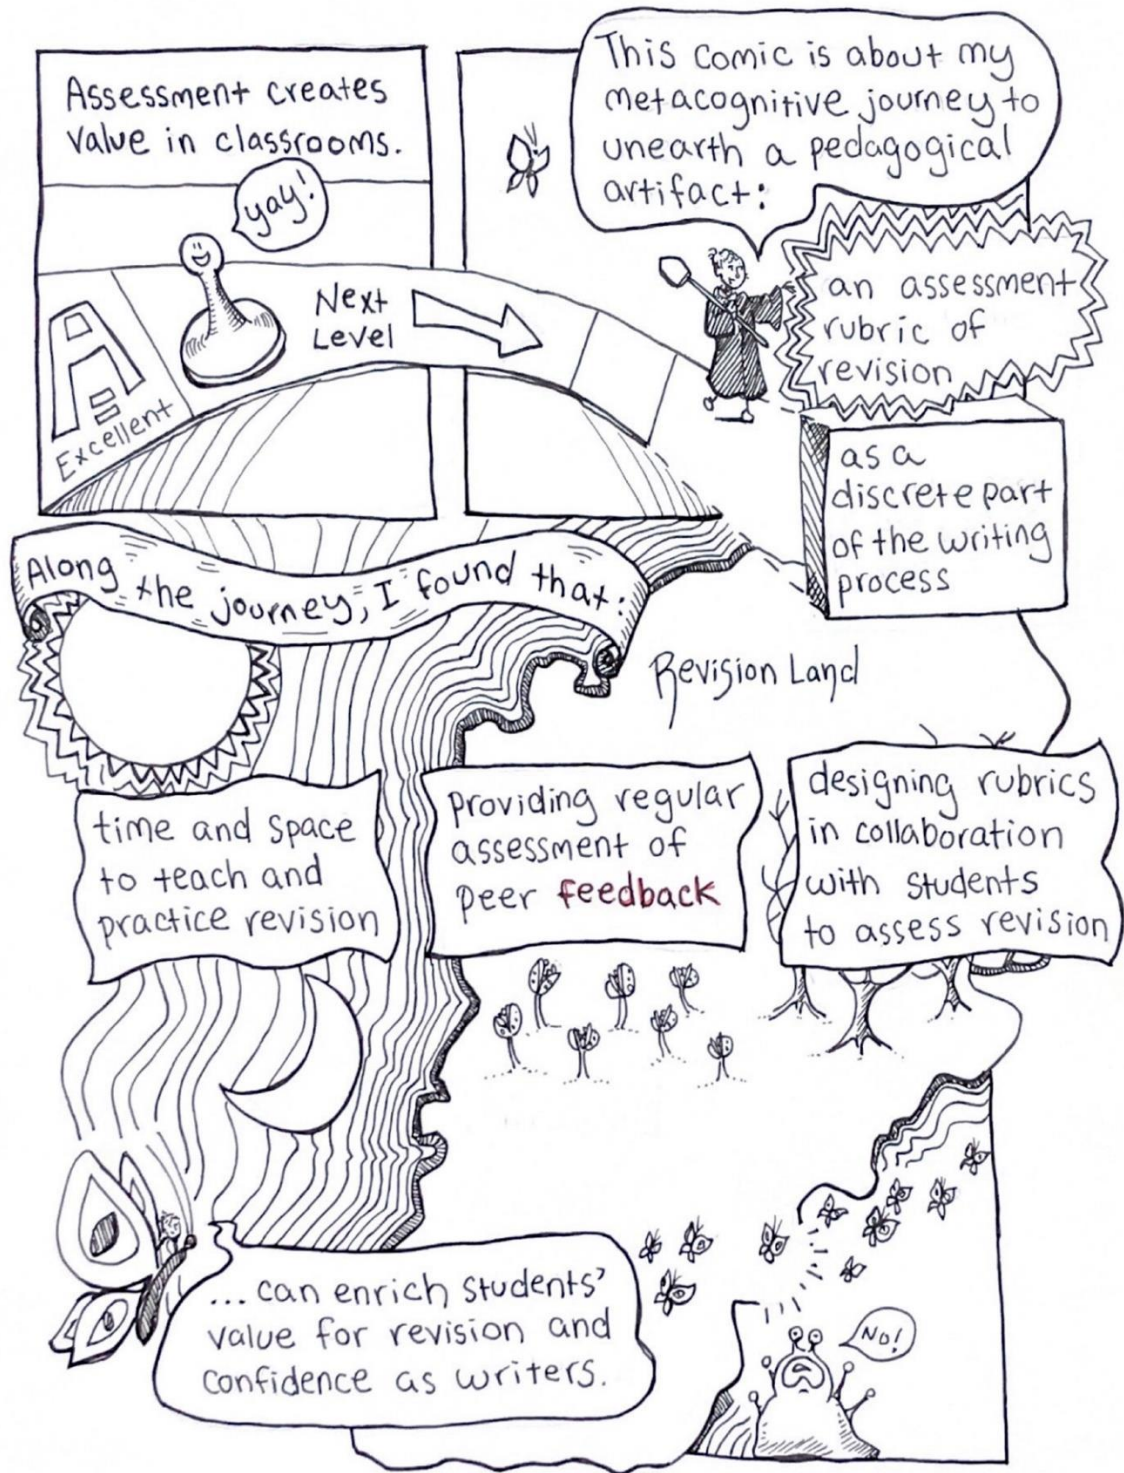 Assessment creates
value in classrooms.
yay!
A
Excellent
Next
Level
This comic is about my
metacognitive journey to
unearth a pedagogical
artifact:
an assessment
rubric of
revision
as a
discrete part
of the writing
process
Along the journey, I found that:
Revision Land
time and space
to teach and
practice revision
providing regular
assessment of
peer feedback
designing rubrics
in collaboration
with students
to assess revision
... can enrich students'
value for revision and
confidence as writers.
No!